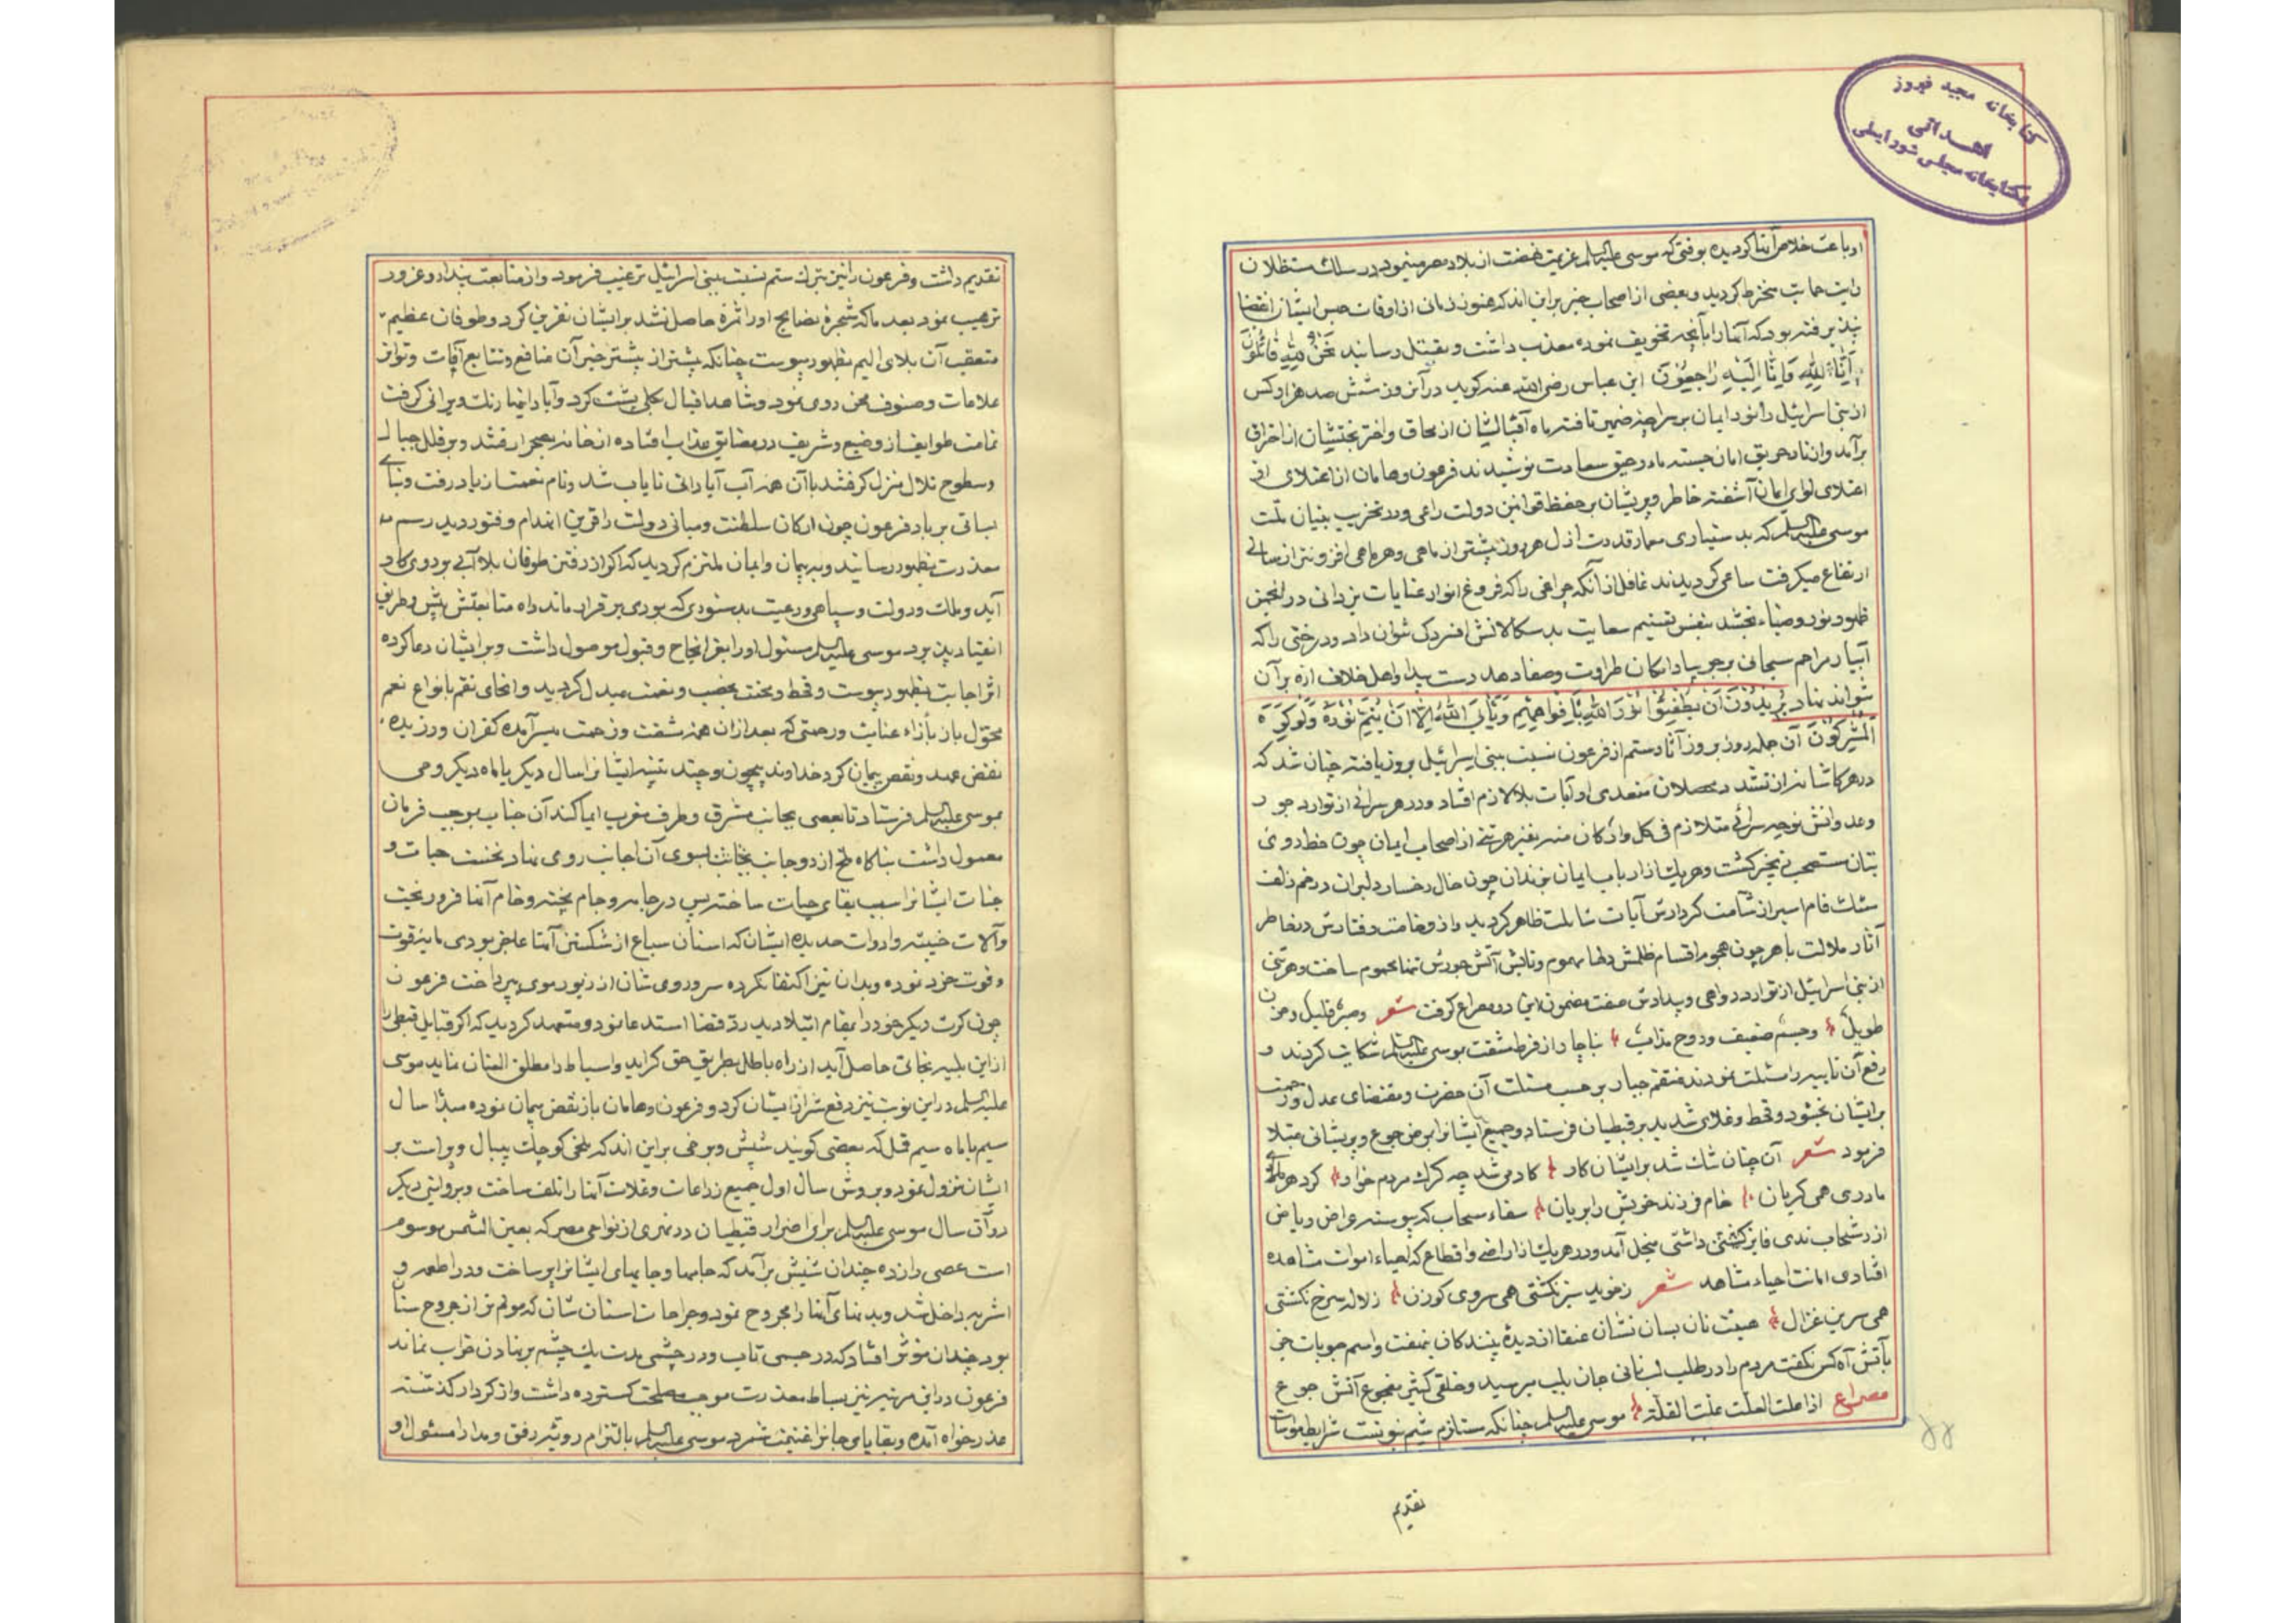 کتابخانه مجید فیروز
اهدائی
بکتابخانه مجلس شورایملی
او باعث خلاص آنها گردیده بوقتی که موسی علیه السلم عزیمت نهضت از بلاد مصر مینمود در سلك مستظلان
رایت حمایت منخرط گردید و بعضی از اصحاب خبر بر این اند که هنوز زمانی از اوقات حبس ایشان انقضا
نپذیرفته بود که آنها را بآنچه تخویف نموده معذب داشت و بقتل رسانید
اِنّا لِلّٰهِ وَاِنّا اِلَیْهِ رٰاجِعُوْنَ ابن عباس رضی الله عنه گوید در آن روز ششصد هزار کس
از بنی اسرائیل را نور ایمان بر سراچه ضمیر تافته ماه آقبالشان از محاق و اختر بختشان از احتراق
برآمد و از نار حریق امان جسته ماء رحیق سعادت نوشیدند فرعون و هامان از اعتلای
اعتلای لوای ایمان آشفته خاطر و پریشان بر حفظ قوانین دولت راعی و در تخریب بنیان ملت
موسی علیه السلم که بدستیاری معمار قدرت ازل هر روز بیشتر از ماهی و هر ماهی افزونتر از سالی
ارتفاع میگرفت ساعی گردیدند غافل از آنکه چراغی را که فروغ انوار عنایات یزدانی در انجمن
ظهور نور و ضیاء بخشد بنفس تسنیم سعایت بدسکالانش افسردن نتوان داد و درختی را که
آبیار مراحم سبحانی بر جویبار امکان طراوت و صفا دهد دست بیداد اهل خلاف اره بر آن
نتواند نهاد یُرِیْدُوْنَ اَنْ یُطْفِئُوْا نُوْرَ اللّٰهِ بِاَفْوٰاهِهِمْ وَیَأْبَی اللّٰهُ اِلّٰا اَنْ یُتِمَّ نُوْرَهُ وَلَوْ کَرِهَ
الْمُشْرِکُوْنَ آن جمله روز بروز آثار ستم از فرعون نسبت ببنی اسرائیل بروز یافته چنان شد که
در هر کاشانه از تشدد محصلان متعدی او آیات بلا لازم افتاد و در هر سرائی از توارد جور
و عدوانش نوحه سرائی متلازم
بتان مستحب تحیر گشت و هر یك از ارباب ایمان بزندان چون خال رخسار دلبران در خم زلف
مشك فام اسیر از شآمت کردارش آیات شاملت ظاهر گردید و از وخامت رفتارش در خاطر
آثار ملالت باهر چون هجوم اقسام ظلمش دلها مهموم و تابش آتش جورش تنها محموم ساخت و هر تنی
از بنی اسرائیل از توارد دواهی و بیدادش صفت مضمون این دو مصراع گرفت شعر وصبر قلیل وحزن
طویل وجسم ضعیف وروح مذاب بناچار از فرط مشقت بموسی علیه السلم شکایت کردند و
رفع آن نایبه را مسئلت نمودند منتقم جبار بر حسب مسئلت آن حضرت و مقتضای عدل و رحمت
بر ایشان بخشود و قحط و غلای شدید بر قبطیان فرستاد و جمیع ایشانرا بمرض جوع و پریشانی مبتلا
فرمود شعر آن چنان شك شد بر ایشان کار کادمی شد چه گرگ مردم خوار کرد هر
مادری همی گریان خام فرزند خویش را بریان سقاء سحاب که پیوسته عراض ریاض
از رشحات ندی فایز گشتی داشتی منجل آمد و در هر یك از اراضی و اقطاع که احیاء اموات مشاهده
افتادی امانت احیاء مشاهد شعر ز خوید سبز نگشتی همی سروی گوزن ز لاله سرخ نگشتی
همی سرین غزال صیت نان بسان نشان عنقا از دیدۀ بینندگان نهفت و اسم حبوبات جز
بآتش آه کس نگفت مردم را در طلب لب نانی جان بلب میرسید و خلقی کثیر بفجوع آتش جوع
مصراع اذا علت العلت غلت القلة موسی علیه السلم چنانکه مستلزم شیم نبوتست شرایط مواسات
تقدیم
تقدیم داشت و فرعون را نیز بترك ستم نسبت ببنی اسرائیل ترغیب فرمود و از متابعت پندار و غرور
ترهیب نمود بعد ما که شجرۀ نصایح او را ثمرۀ حاصل نشد بر ایشان نفرین کرد و طوفان عظیم
متعقب آن بلای الیم بظهور پیوست چنانکه پیشتر از پیشتر خیر آن منافع و تتابع آفات و تواتر
علامات و صنوف محن روی نمود و شاهد اقبال بکلی پشت کرد و آبادانیها رنك ویرانی گرفت
تمامت طوایف از وضیع و شریف در مضایق عذاب افتاده از خانه بصحرا رفتند و بر قلل جبال
و سطوح تلال منزل گرفتند با آن همه آب آبادانی نایاب شد و نام نعمت از یاد رفت و بنای
بساتی بر باد فرعون چون ارکان سلطنت و مبانی دولت را قرین انهدام و فتور دید رسم
معذرت بظهور رسانید و به پیمان و ایمان ملتزم گردید که اگر از رفتن طوفان بلا آبی بر روی کار
آید و ملك و دولت و سپاهی و رعیت بدستوری که بودی بر قرار ماند راه متابعتش پیش و طریق
انقیاد پیش برد موسی علیه السلم مسئول او را بعز انجاح و قبول موصول داشت و بر ایشان دعا کرده
اثر اجابت بظهور پیوست و قحط و محنت بخصب و نعمت مبدل گردید و انحای نقم بانواع نعم
محول باز بأزاء عنایت و رحمتی که بعد از آن همه مشقت و زحمت میسر آمده کفران ورزیده
نقض عهد و نقص پیمان کرد خداوند بیچون و چند تنبیه ایشانرا سال دیگر یا ماه دیگر وحی
بموسی علیه السلم فرستاد تا بعصی بجانب مشرق و طرف مغرب ایما کند آن جناب بموجب فرمان
معمول داشت بناگاه ملخ از دو جانب بجانب بسوی آن اجانب روی نهاد نخست حیات و
جنات ایشانرا سبب بقای حیات ساخته پس در جامه و جام پخته و خام آنها فرو ریخت
و آلات خشبیه و ادوات حدیدۀ ایشان که اسنان سباع از شکستن آنها عاجز بودی مایۀ قوت
و قوت خود نموده و بدان نیز اکتفا نکرده سر و روی شان از زیور موی بپرداخت فرعون
چون کرت دیگر خود را بمقام ابتلا دید رد قضا استدعا نمود و متعهد گردید که اگر قبایل قبطی را
از این بلیه نجاتی حاصل آید از راه باطل بطریق حق گراید و اسباط را مطلق العنان نماید موسی
علیه السلم در این نوبت نیز دفع شر از ایشان کرد و فرعون و هامان باز نقض پیمان نموده مبدأ سال
سیم یا ماه سیم قمل که بعضی گویند شپش و برخی بر این اند که ملخی کوچك بیبال و پر است بر
ایشان نزول نمود و بروش سال اول جمیع زراعات و غلات آنها را تلف ساخت و بروایتی دیگر
در آن سال موسی علیه السلم برای اضرار قبطیان در نهری از نواحی مصر که بعین الشمس موسوم
است عصی را زده چندان شپش برآمد که جامها و جایهای ایشانرا پر ساخت و در اطعمه و
اشربه داخل شد و بدنهای آنها را مجروح نمود و جراحات اسنان شان که مولم تر از جروح سنان
بود چندان مؤثر افتاد که در جسمی تاب و در چشمی مدت یك چشم بر نهادن خواب نماند
فرعون در این مرتبه نیز بساط معذرت موجب مصلحت گسترده داشت و از کردار گذشته
عذرخواه آمده و بقایای جانرا غنیمت شمرد موسی علیه السلم بالتزام رویۀ رفق و مدارا مسئول او